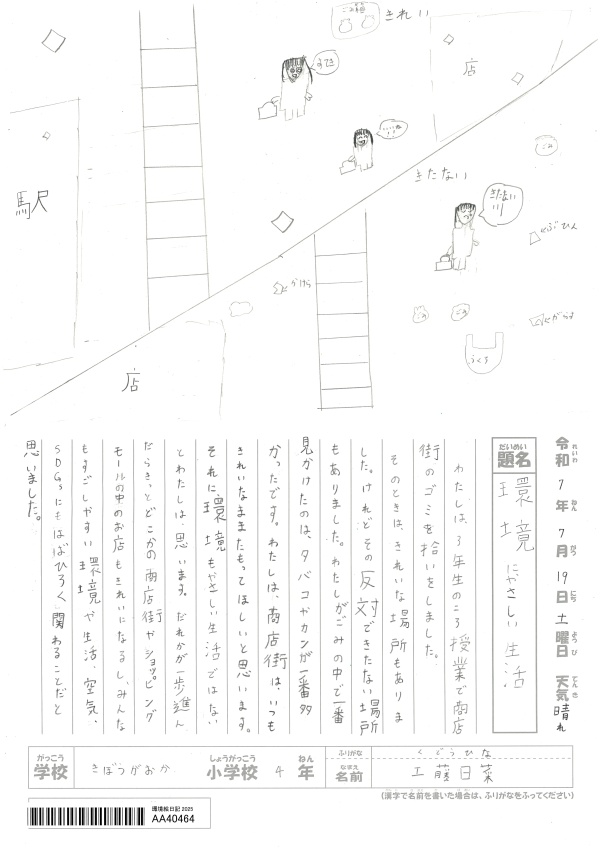 ごみ箱
きれい
すてき
店
駅
きたない
きたない
ごみ
ぶひん
かけら
ごみ
ごみ
がらす
ふくろ
店
令和7年7月19日土曜日 天気晴れ
れいわ ねん がつ にち ようび てんき
だいめい
題名
環境にやさしい生活
わたしは、3年生のころ授業で商店
街のゴミを拾いをしました。
そのときは、きれいな場所もありま
した。けれどその反対できたない場所
もありました。わたしがごみの中で一番
見かけたのは、タバコやカンが一番多
かったです。わたしは、商店街は、いつも
きれいなままたもってほしいと思います。
それに環境もやさしい生活ではない
とわたしは、思います。だれかが一歩進ん
だらきっとどこかの商店街やショッピング
モールの中のお店もきれいになるし、みんな
もすごしやすい環境や生活、空気、
SDGsにもはばひろく関わることだと
思いました。
がっこう しょうがっこう ねん ふりがな くどうひな
学校 きぼうがおか 小学校 4年 なまえ 名前 工藤日菜
(漢字で名前を書いた場合は、ふりがなをふってください)
環境絵日記 2025
AA40464